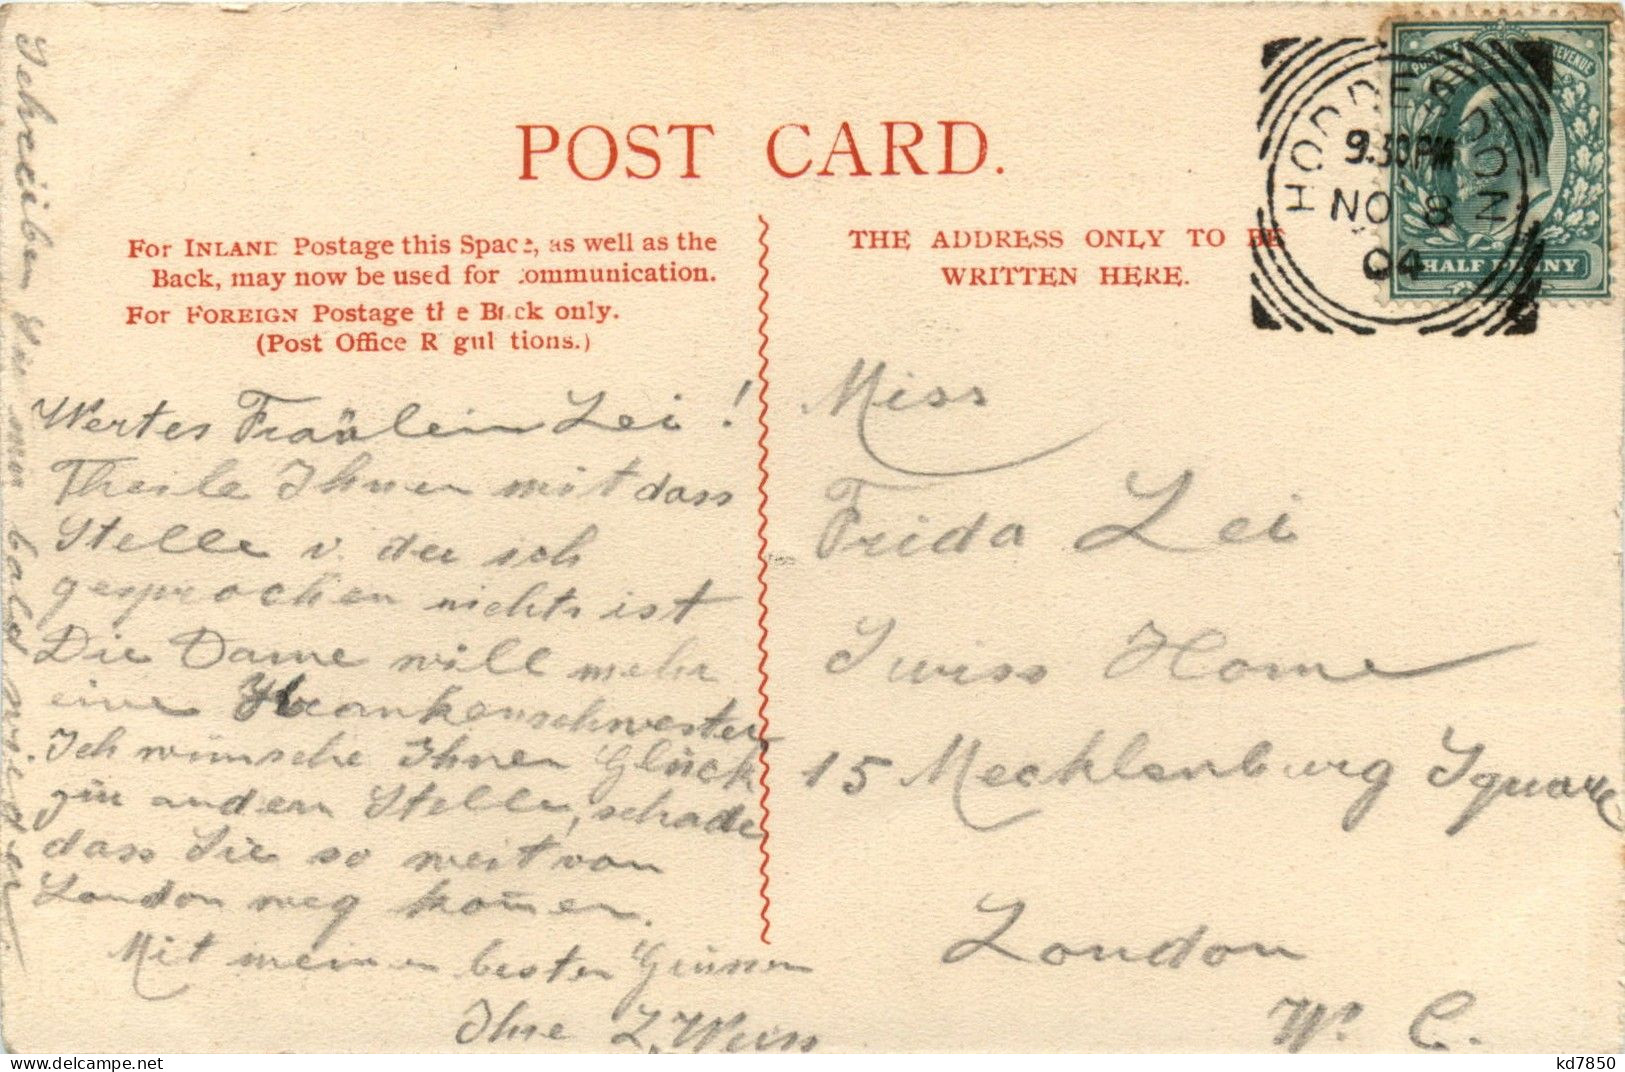 POST CARD.
For INLAND Postage this Space, as well as the
Back, may now be used for communication.
For FOREIGN Postage the Back only.
(Post Office Regulations.)
THE ADDRESS ONLY TO BE
WRITTEN HERE.
HODDESDON
9.30PM
NO 8
04
REVENUE
HALF PENNY
Wertes Fräulein Lei!
Theile Ihnen mit dass
Stelle v. der ich
gesprochen nichts ist
Die Dame will mehr
eine Krankenschwester
Ich wünsche Ihnen Glück
zur andern Stelle, schade
dass Sie so weit von
London weg kom̄en.
Mit meinen besten Grüssen
Ihre L. Weiss
Schreiben Sie mir bald wieder.
Miss
Frida Lei
Swiss Home
15 Mecklenburg Square
London
W. C.
kd7850